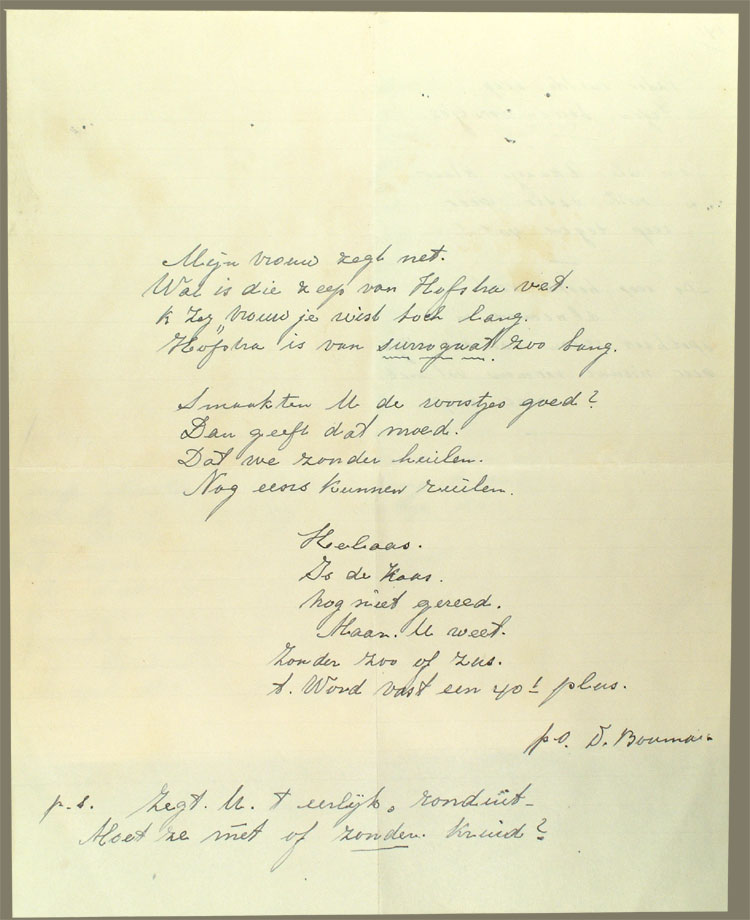 Mijn vrouw zegt net.
Wat is die zeep van Hofstra vet.
k Zeg "vrouw je wist toch lang.
Hofstra is van surrogaat zoo bang.
Smaakten U de worstjes goed?
Dan geeft dat moed.
Dat we zonder huilen.
Nog eens kunnen ruilen.
Helaas.
Is de Kaas.
nog niet gereed.
Maar. U weet.
Zonder zoo of zus.
t. Word vast een 40+ plus.
D. Bouma
p.s. Zegt. U. t eerlijk, ronduit-
Moet ze mét of zonder. Kruid?